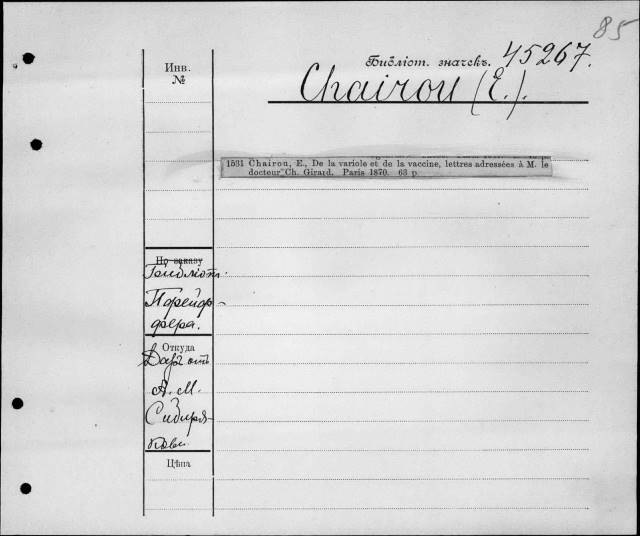 85
Инв.
№
Библіот. значекъ. 45267.
Chairou (E.).
1531 Chairou, E., De la variole et de la vaccine, lettres adressées à M. le
docteur Ch. Girard. Paris 1870. 63 p.
По заказу
Библіот.
Пфейф-
фера.
Откуда
Даръ отъ
А. М.
Сибиря-
кова.
Цѣна